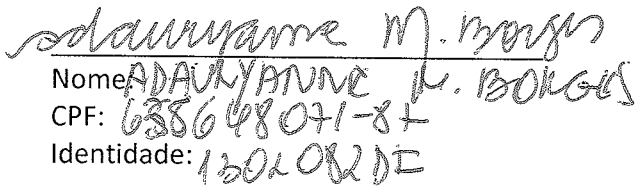 Adauryanne M. Borges
Nome: ADAURYANNE M. BORGES
CPF: 638648071-87
Identidade: 1302082 DF